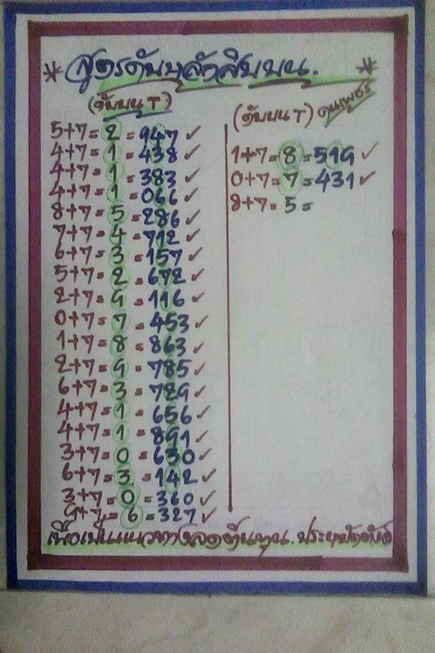 * สูตรดับบนหลักสิบบน. *
(ดับบน T)
5+7=2=947 ✓
4+7=1=438 ✓
4+7=1=383 ✓
4+7=1=066 ✓
8+7=5=286 ✓
7+7=4=712 ✓
6+7=3=157 ✓
5+7=2=672 ✓
2+7=9=116 ✓
0+7=7=453 ✓
1+7=8=863 ✓
2+7=9=785 ✓
6+7=3=729 ✓
4+7=1=656 ✓
4+7=1=891 ✓
3+7=0=630 ✓
6+7=3=142 ✓
3+7=0=360 ✓
9+7=6=327 ✓
(ดับบน T)
1+7=8=519 ✓
0+7=7=431 ✓
8+7=5=
เพื่อเป็นแนวทางลดต้นทุน.